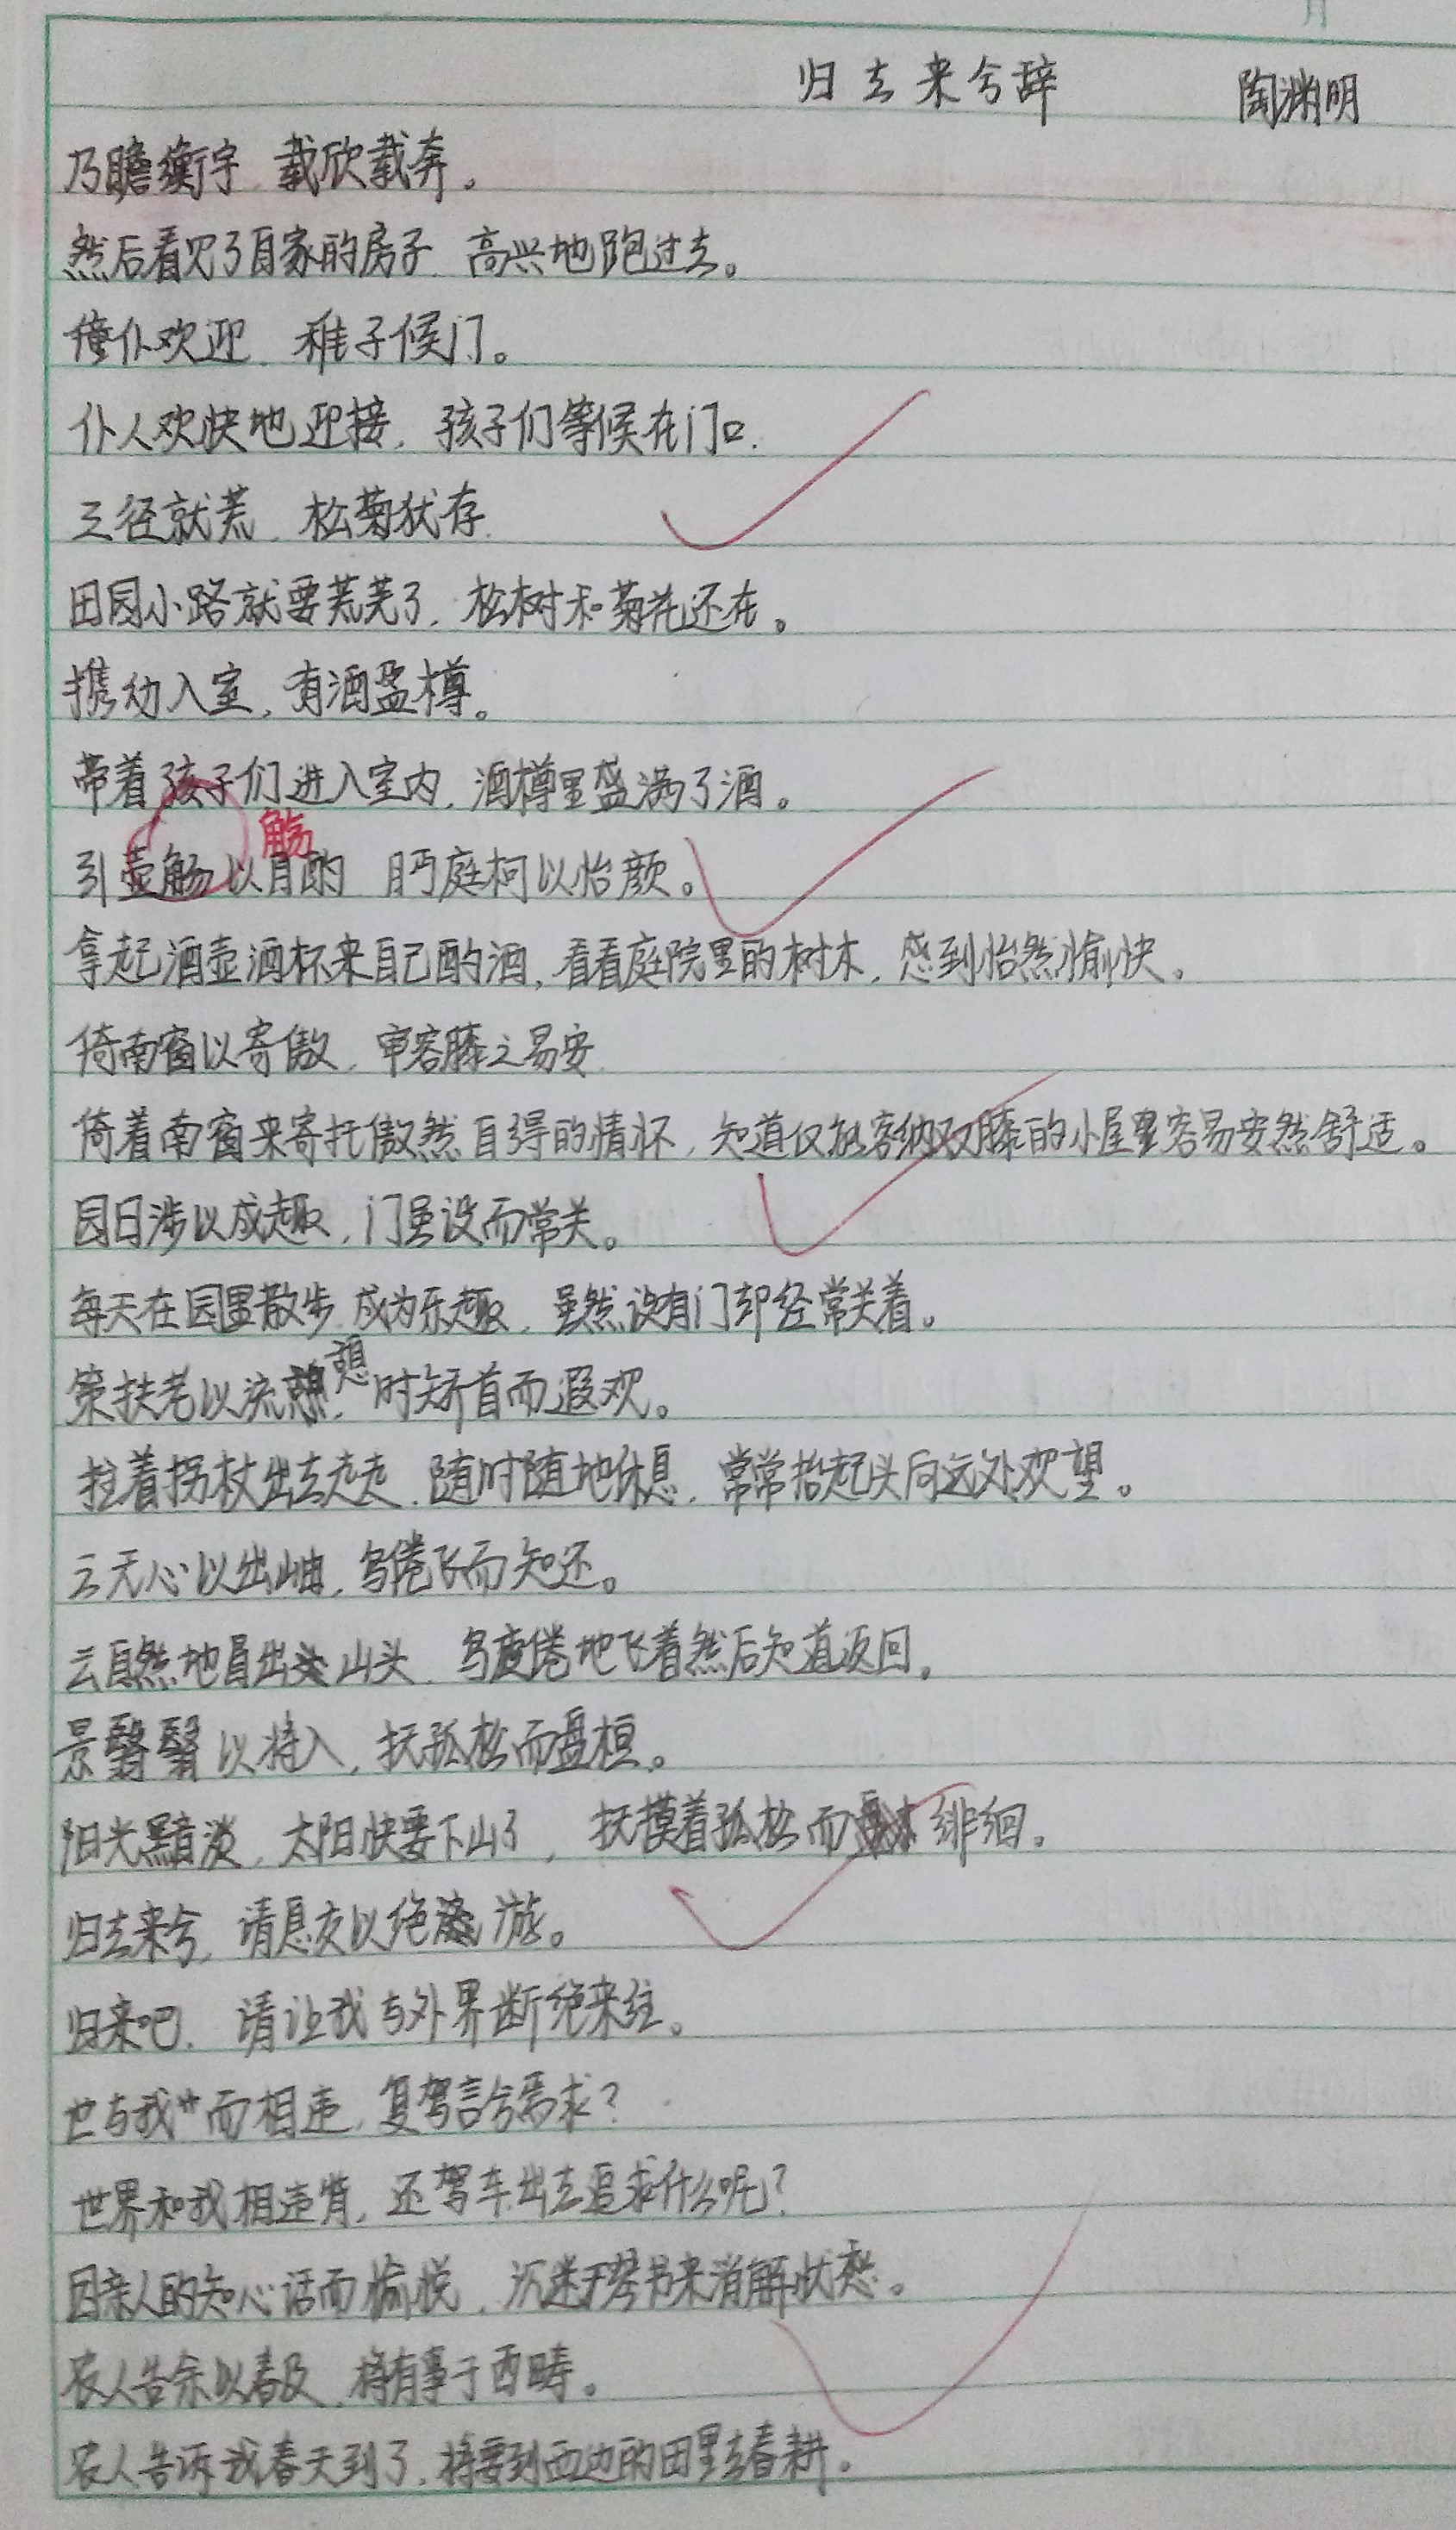 月
归去来兮辞 陶渊明
乃瞻衡宇,载欣载奔。
然后看见了自家的房子,高兴地跑过去。
僮仆欢迎,稚子候门。
仆人欢快地迎接,孩子们等候在门口.
三径就荒,松菊犹存.
田园小路就要荒芜了,松树和菊花还在。
携幼入室,有酒盈樽。
带着孩子们进入室内,酒樽里盛满了酒。
觞
引壶觞以自酌 眄庭柯以怡颜。
拿起酒壶酒杯来自己酌酒,看看庭院里的树木,感到怡然愉快。
倚南窗以寄傲,审容膝之易安.
倚着南窗来寄托傲然自得的情怀,知道仅能容纳双膝的小屋里容易安然舒适。
园日涉以成趣,门虽设而常关。
每天在园里散步 成为乐趣,虽然设有门却经常关着。
策扶老以流憩,时矫首而遐观。
拄着拐杖出去走走,随时随地休息,常常抬起头向远处观望。
云无心以出岫,鸟倦飞而知还。
云自然地冒出山头,鸟疲倦地飞着然后知道返回。
景翳翳以将入,抚孤松而盘桓。
阳光黯淡,太阳快要下山了,抚摸着孤松而徘徊。
归去来兮,请息交以绝游。
归来吧,请让我与外界断绝来往。
世与我而相违,复驾言兮焉求?
世界和我相违背,还驾车出去追求什么呢?
因亲人的知心话而愉悦,沉迷于琴书来消解忧愁。
农人告余以春及,将有事于西畴。
农人告诉我春天到了,将要到西边的田里去春耕。